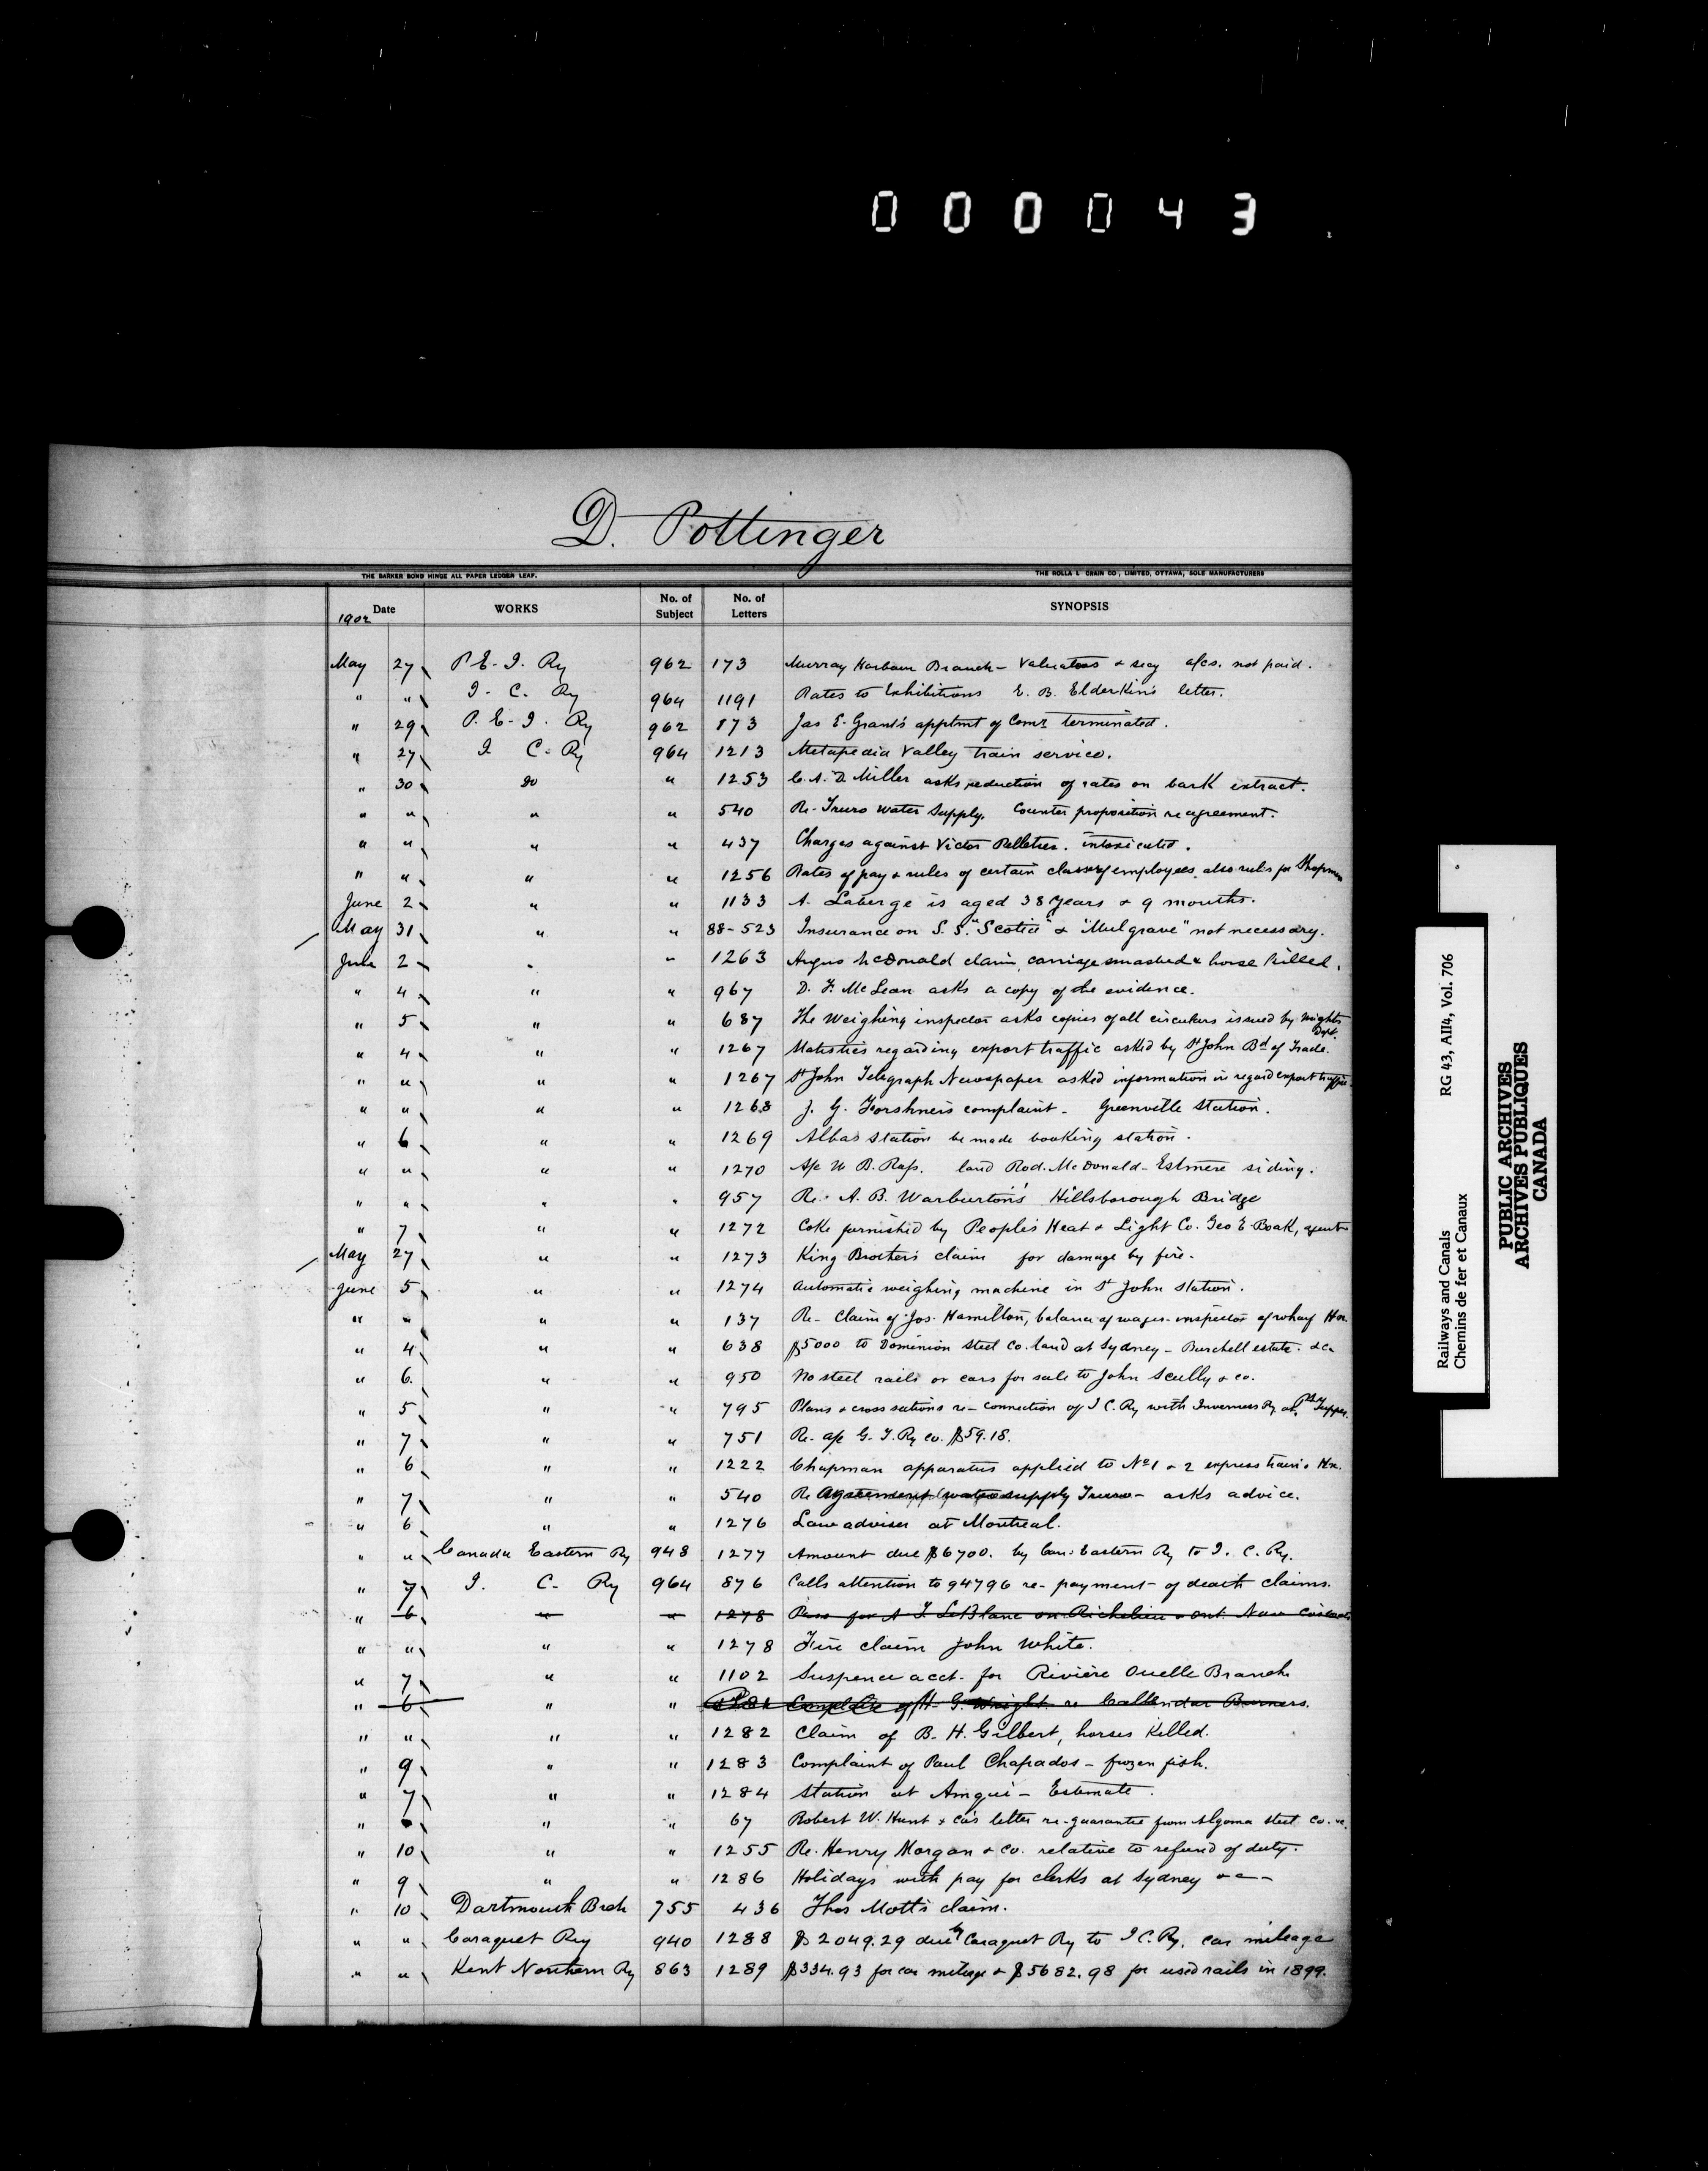 000043
D. Pottinger
THE BARKER BOND HINGE ALL PAPER LEDGER LEAF.
THE ROLLA L. CRAIN CO., LIMITED, OTTAWA, SOLE MANUFACTURERS
1902 Date WORKS No. of Subject No. of Letters SYNOPSIS
May 27 P.E.I. Ry 962 173 Murray Harbour Branch - Valuators & secy a/cs. not paid.
" " I. C. Ry 964 1191 Rates to Exhibitions E. B. Elderkin's letter.
" 29 P.E.I. Ry 962 873 Jas E. Grant's apptmt of Comr terminated.
" 27 I C. Ry 964 1213 Metapedia Valley train service.
" 30 do " 1253 C. A. D. Miller asks reduction of rates on bark extract.
" " " " 540 Re-Truro water supply. Counter proposition re agreement.
" " " " 437 Charges against Victor Pelletier. intoxicated.
" " " " 1256 Rates of pay & rules of certain classes of employees. also rules for Shopmen
June 2 " " 1133 A. Laberge is aged 38 years & 9 months.
May 31 " " 88-523 Insurance on S.S. "Scotia" & "Mulgrave" not necessary.
June 2 " " 1263 Angus McDonald claim, carriage smashed & horse killed.
" 4 " " 967 D. F. McLean asks a copy of the evidence.
" 5 " " 687 The Weighing inspector asks copies of all circulars issued by Weights Dept.
" 4 " " 1267 Statistics regarding export traffic asked by St John Bd of Trade.
" " " " 1267 St John Telegraph Newspaper asked information in regard export traffic.
" " " " 1268 J. G. Forshner's complaint - Greenville Station.
" 6 " " 1269 Albas station be made booking station.
" " " " 1270 A/c W. B. Ross. land Rod. McDonald - Estmere siding.
" " " " 957 Re. A. B. Warburton's Hillsborough Bridge
" 7 " " 1272 Coke furnished by People's Heat & Light Co. Geo E. Boak, agent
May 27 " " 1273 King Brothers claim for damage by fire.
June 5 " " 1274 Automatic weighing machine in St John station.
" " " " 137 Re- Claim of Jos. Hamilton, balance of wages - inspector of wharf Hx.
" 4 " " 638 $5000 to Dominion Steel Co. land at Sydney - Burchell estate. &c
" 6. " " 950 No steel rails or cars for sale to John Scully & co.
" 5 " " 795 Plans & cross sections re- connection of I C. Ry with Inverness Ry at Pt Tupper.
" 7 " " 751 Re- a/c G. T. Ry co. $59.18.
" 6 " " 1222 Chapman apparatus applied to No 1 & 2 express trains Hx.
" 7 " " 540 Re Agreement water supply Truro - asks advice.
" 6 " " 1276 Law adviser at Montreal.
" " Canada Eastern Ry 948 1277 Amount due $6700. by Can: Eastern Ry to I. C. Ry.
" 7 I. C. Ry 964 876 Calls attention to 94796 re- payment of death claims.
" 6 " " 1278 Pass for A T. LeBlanc on Richelieu & Ont. Nav
" " " " 1278 Fire claim John White.
" 7 " " 1102 Suspence acct. for Rivière Ouelle Branch
" 6 " " H. G. Wright re Callendar Burners.
" " " " 1282 Claim of B. H. Gilbert, horses killed.
" 9 " " 1283 Complaint of Paul Chapados - frozen fish.
" 7 " " 1284 Station at Amqui - Estimate.
" " " 67 Robert W. Hunt & Co's letter re-guarantee from Algoma Steel Co.
" 10 " " 1255 Re. Henry Morgan & Co. relative to refund of duty.
" 9 " " 1286 Holidays with pay for clerks at Sydney &c-
" 10 Dartmouth Brch 755 436 Thos Mott's claim.
" " Caraquet Ry 940 1288 $2049.29 due by Caraquet Ry to I C. Ry. car mileage
" " Kent Northern Ry 863 1289 $334.93 for car mileage & $5682.98 for used rails in 1899.
Railways and Canals RG 43, AII4, Vol. 706
Chemins de fer et Canaux
PUBLIC ARCHIVES
ARCHIVES PUBLIQUES
CANADA